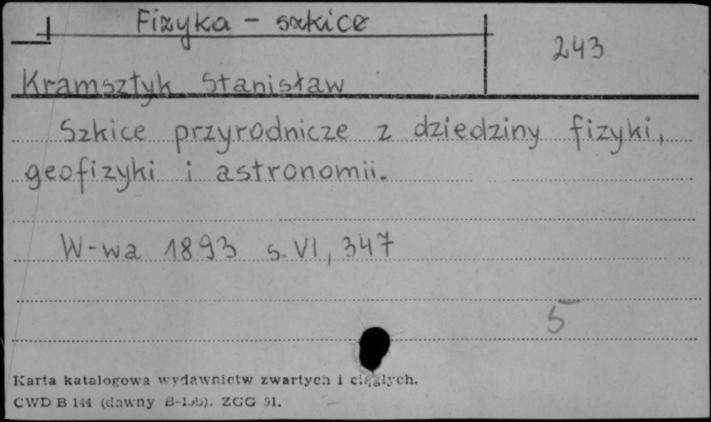 Fizyka - szkice
243
Kramsztyk Stanisław
Szkice przyrodnicze z dziedziny fizyki,
geofizyki i astronomii.
W-wa 1893 s. VI, 347
5
Karta katalogowa wydawnictw zwartych i ciągłych.
CWD B 144 (dawny B-155). ZGG 91.